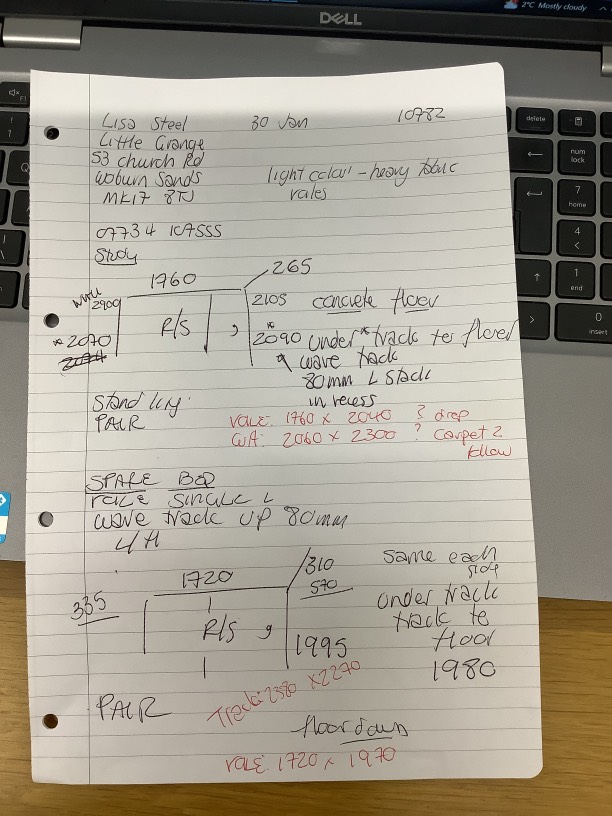 2°C Mostly cloudy
DELL
Lisa Steel 30 Jan 10782
Little Grange
53 church Rd
Woburn Sands
MK17 8TJ
light colour - heavy fabric
voiles
07734
Study
1760 265
wall 2900
2105 concrete floor
R/S
* 2070
* 2090 under * track to floor
wave track
80mm L Stack
in recess
Stand
PAIR
voile: 1760 x 2040 ? drop
2060 x 2300 ? Carpet 2
follow
SPARE BED
voile single L
wave track up 80mm
L/H
1720 310
570
same each
side
335
R/S
1995
under track
track to
floor
1980
Track: 2380 x 2270
PAIR
floor down
voile: 1720 x 1970
delete
num
lock
7
home
4
1
end
0
insert